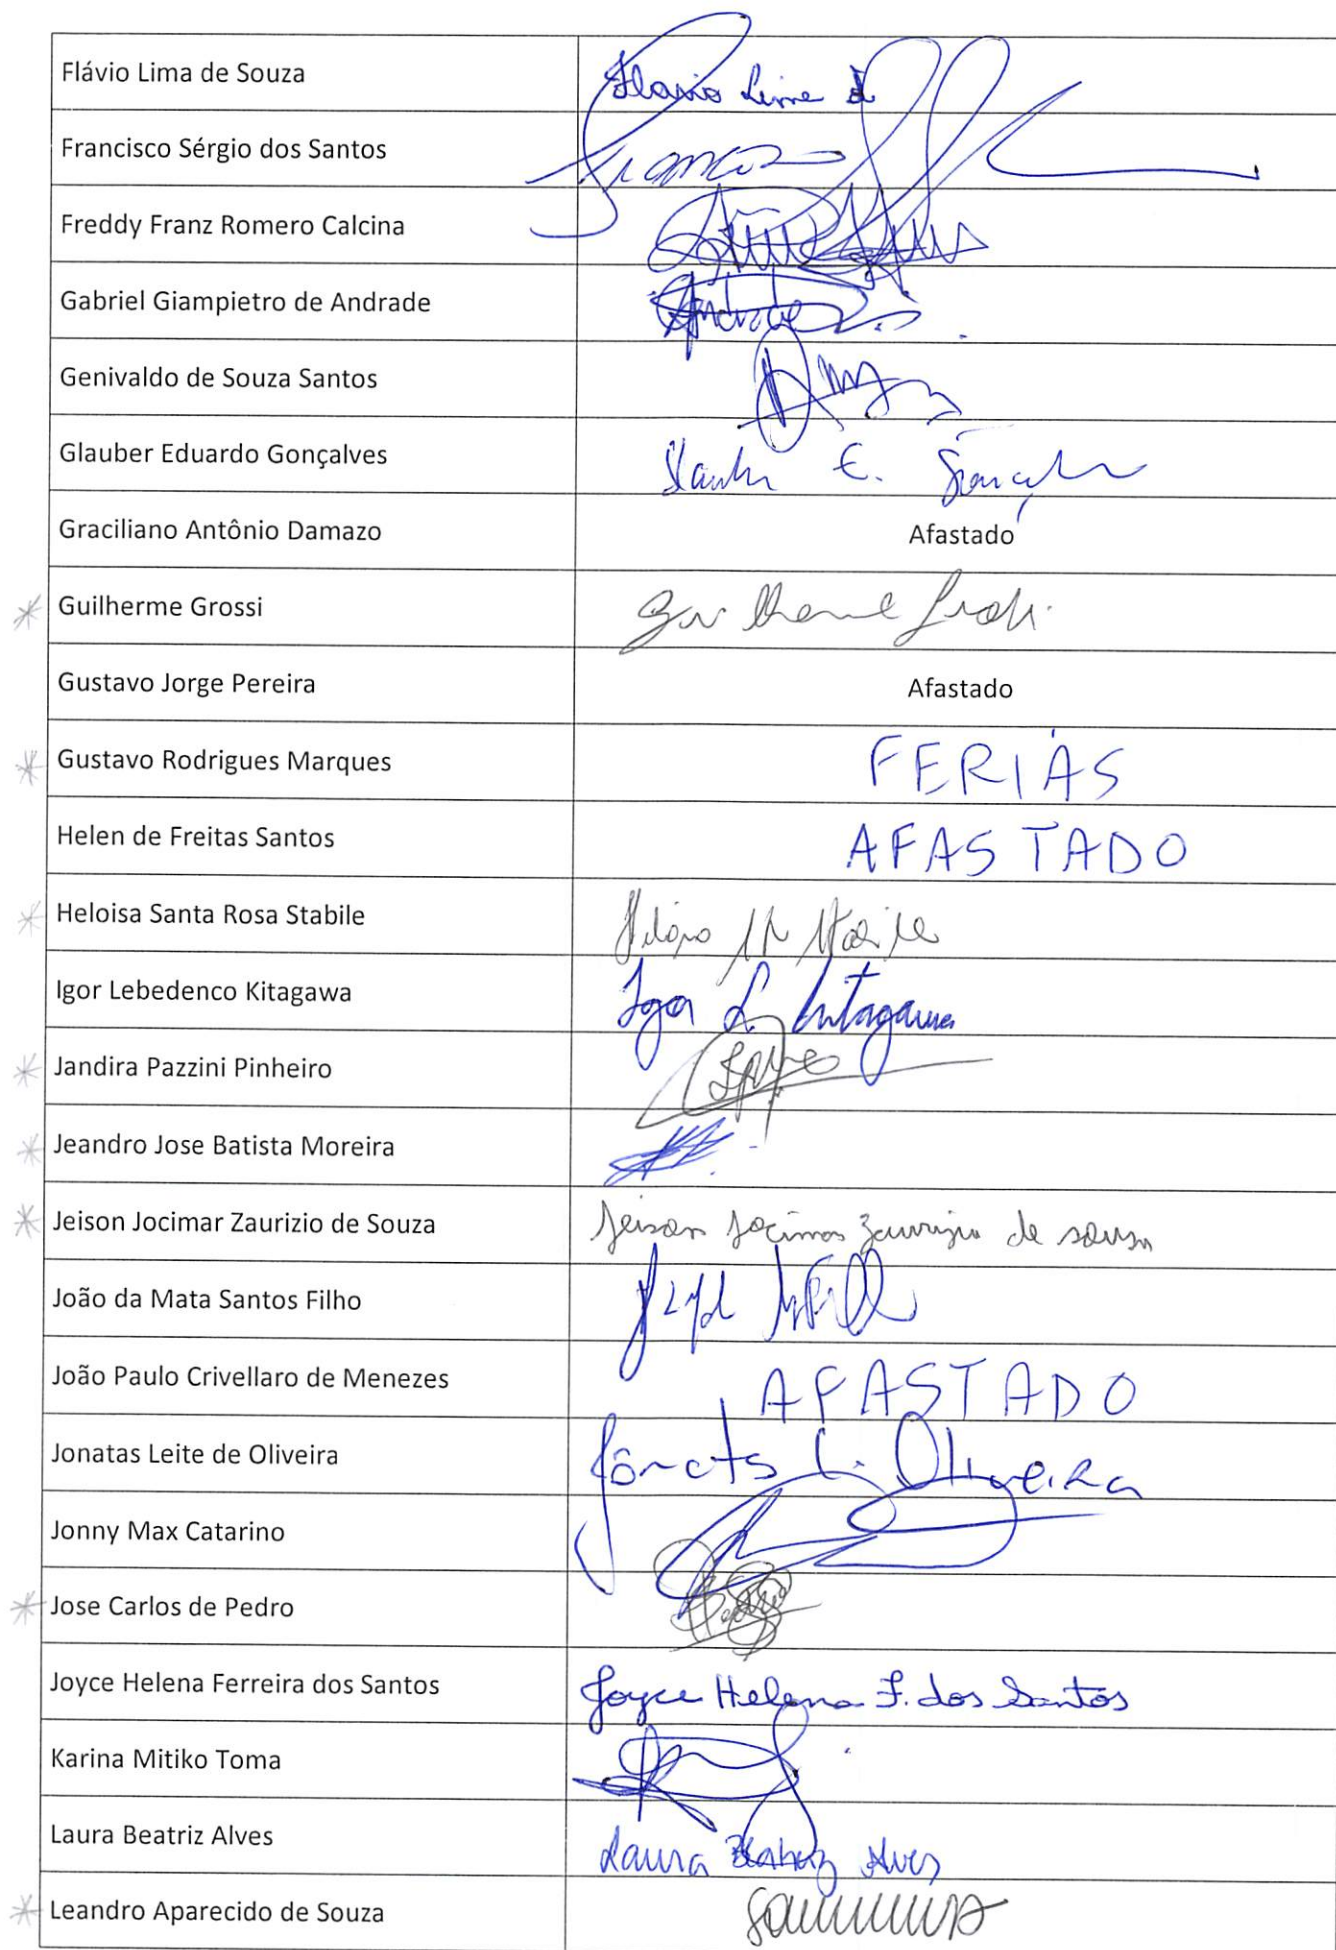 Flávio Lima de Souza Flavio Lima d
Francisco Sérgio dos Santos Francisco
Freddy Franz Romero Calcina
Gabriel Giampietro de Andrade Andrade
Genivaldo de Souza Santos
Glauber Eduardo Gonçalves E.
Graciliano Antônio Damazo Afastado
* Guilherme Grossi Guilherme
Gustavo Jorge Pereira Afastado
* Gustavo Rodrigues Marques FÉRIAS
Helen de Freitas Santos AFASTADO
* Heloisa Santa Rosa Stabile
Igor Lebedenco Kitagawa Igor L. Kitagawa
* Jandira Pazzini Pinheiro
* Jeandro Jose Batista Moreira
* Jeison Jocimar Zaurizio de Souza Jeison Jocimar Zaurizio de Souza
João da Mata Santos Filho
João Paulo Crivellaro de Menezes AFASTADO
Jonatas Leite de Oliveira Jônatas L. Oliveira
Jonny Max Catarino
* Jose Carlos de Pedro
Joyce Helena Ferreira dos Santos Joyce Helena F. dos Santos
Karina Mitiko Toma
Laura Beatriz Alves Laura Beatriz Alves
* Leandro Aparecido de Souza